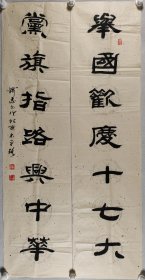 舉國歡度十七大
黨旗指路興中華